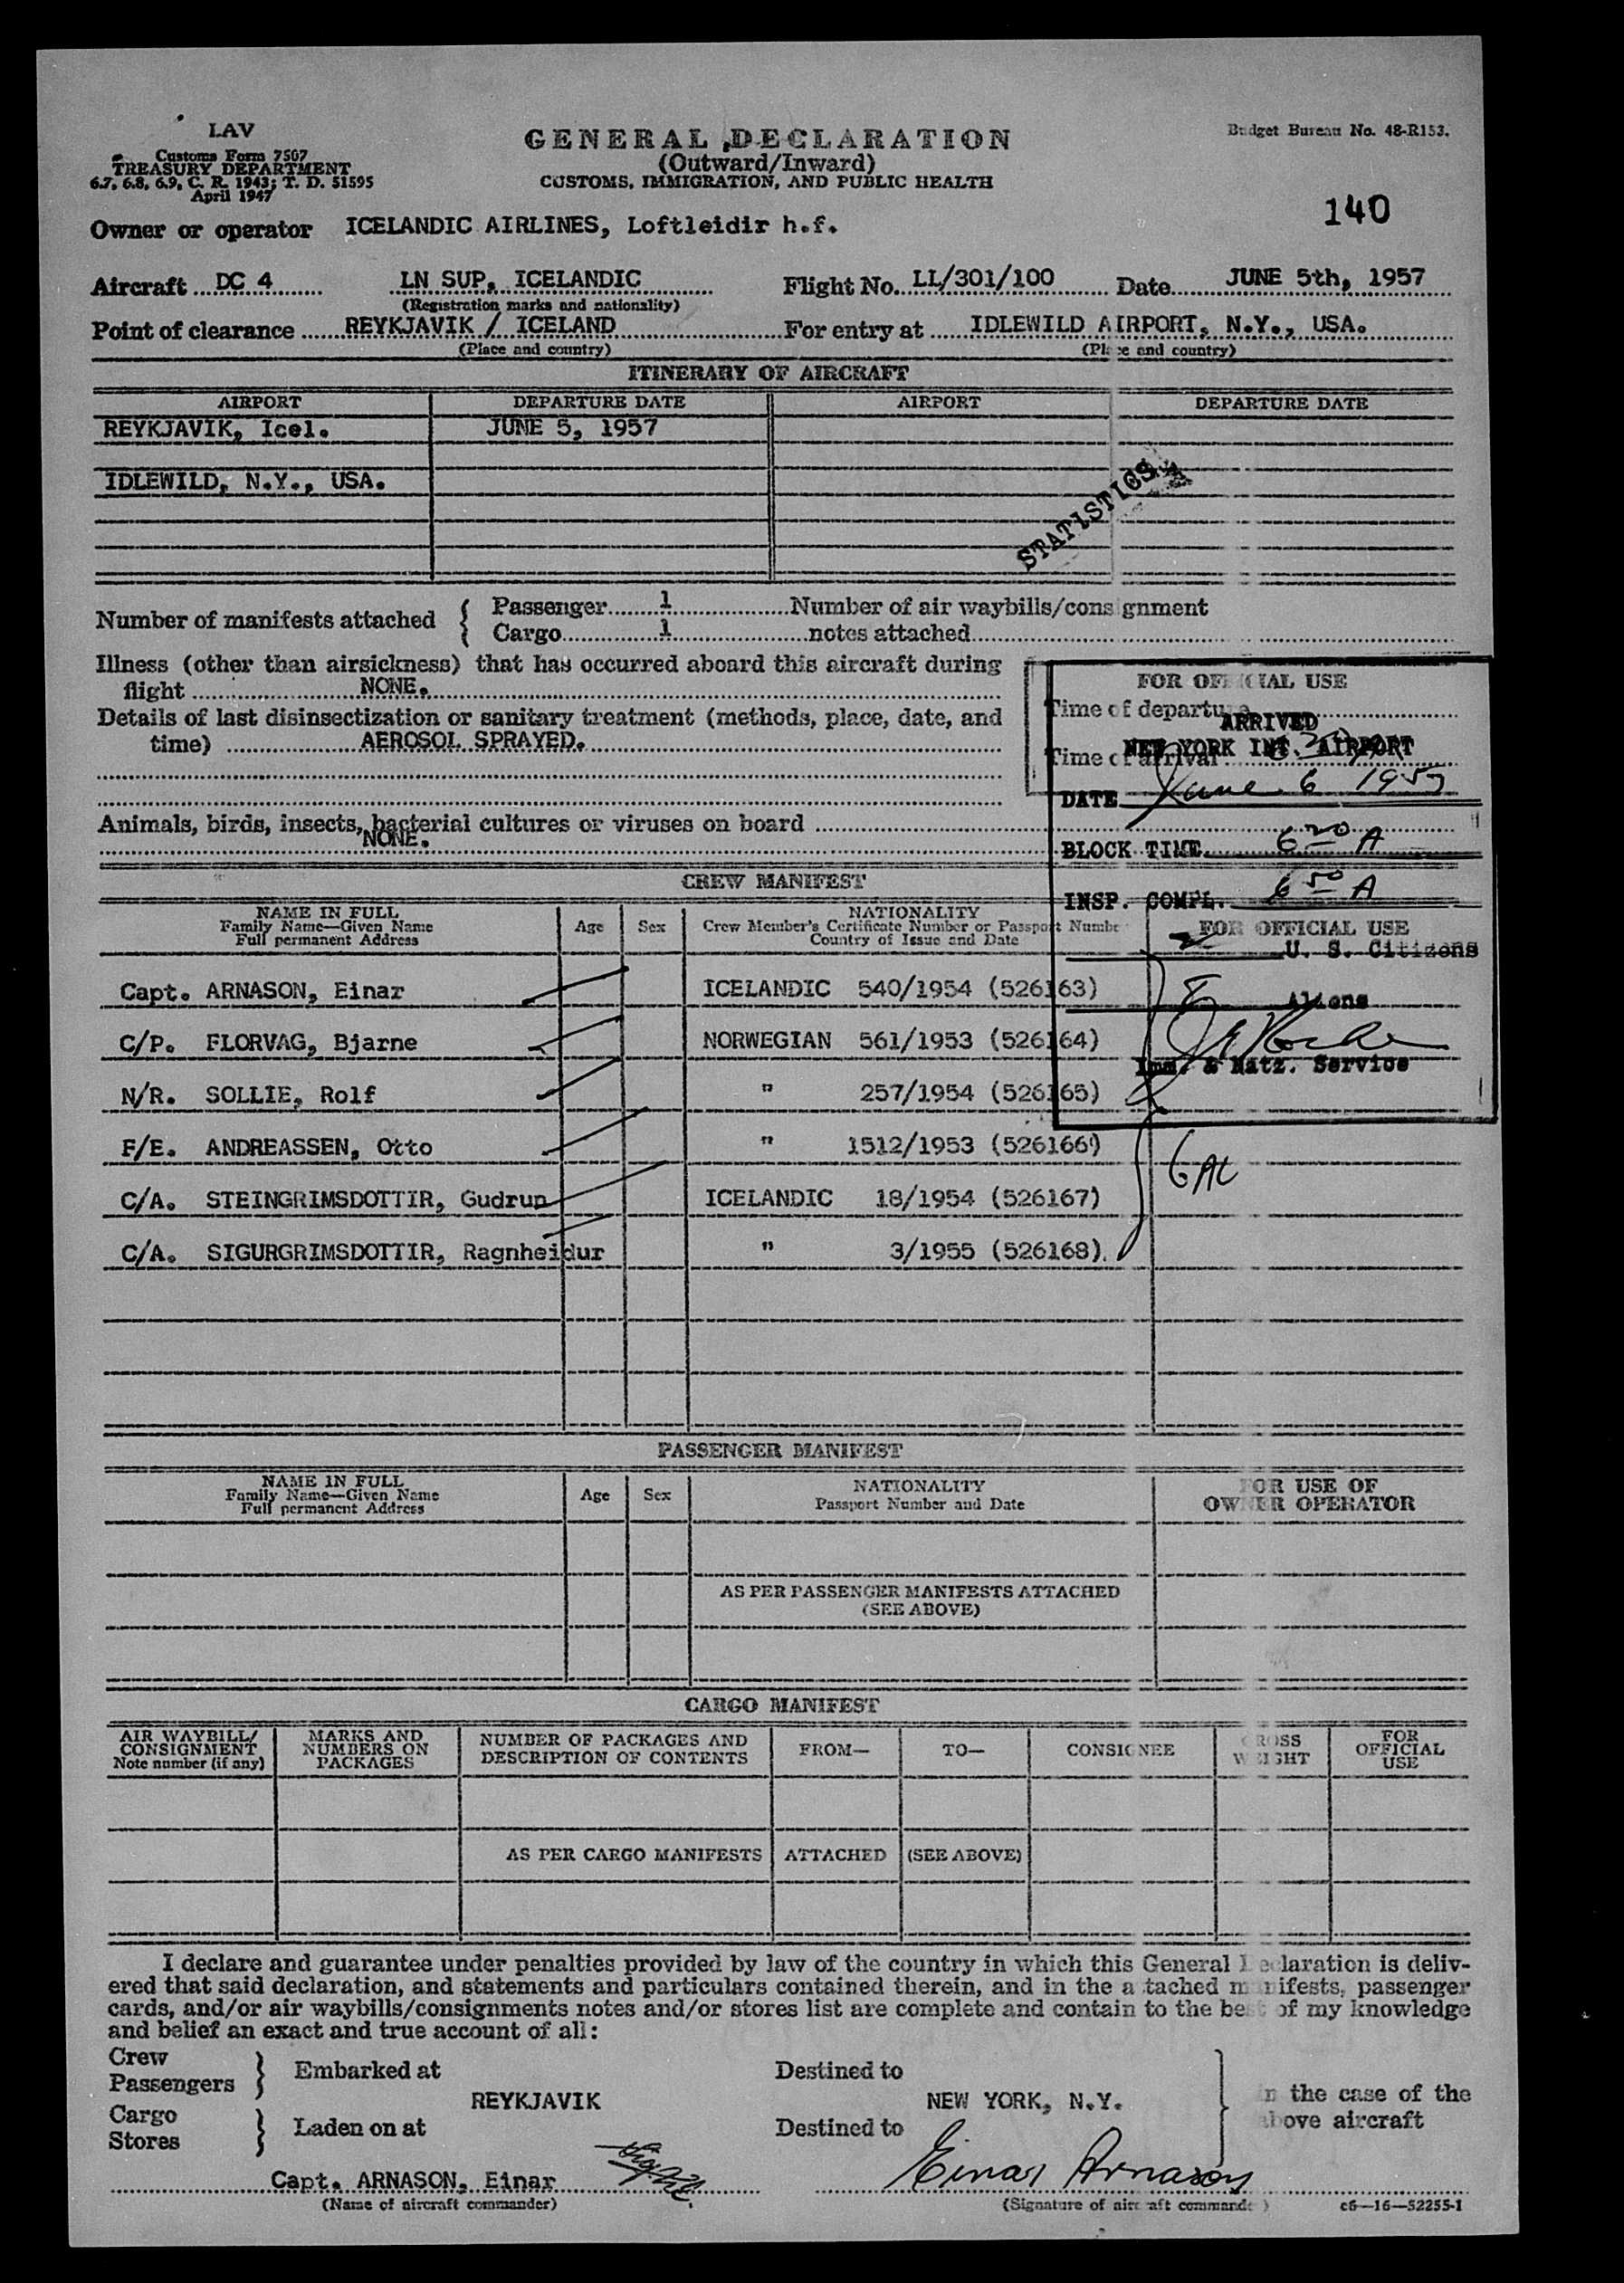 LAV
Customs Form 7507
TREASURY DEPARTMENT
6.7, 6.8, 6.9, C. R. 1943; T. D. 51595
April 1947
GENERAL DECLARATION
(Outward/Inward)
CUSTOMS, IMMIGRATION, AND PUBLIC HEALTH
Budget Bureau No. 48-R153.
140
Owner or operator ICELANDIC AIRLINES, Loftleidir h.f.
Aircraft DC 4 LN SUP. ICELANDIC Flight No. LL/301/100 Date JUNE 5th, 1957
(Registration marks and nationality)
Point of clearance REYKJAVIK / ICELAND For entry at IDLEWILD AIRPORT, N.Y., USA.
(Place and country) (Place and country)
ITINERARY OF AIRCRAFT
AIRPORT DEPARTURE DATE AIRPORT DEPARTURE DATE
REYKJAVIK, Icel. JUNE 5, 1957
IDLEWILD, N.Y., USA.
STATISTICS
Number of manifests attached { Passenger 1 Number of air waybills/consignment
Cargo 1 notes attached
Illness (other than airsickness) that has occurred aboard this aircraft during
flight NONE.
Details of last disinsectization or sanitary treatment (methods, place, date, and
time) AEROSOL SPRAYED.
Animals, birds, insects, bacterial cultures or viruses on board
NONE.
FOR OFFICIAL USE
Time of departure
ARRIVED
NEW YORK INT. AIRPORT
Time of arrival
DATE June 6 1957
BLOCK TIME 6 20 A
INSP. COMPL. 6 50 A
CREW MANIFEST
NAME IN FULL
Family Name—Given Name
Full permanent Address
Age Sex
NATIONALITY
Crew Member's Certificate Number or Passport Number
Country of Issue and Date
FOR OFFICIAL USE
U. S. Citizens
Aliens
Imm. & Natz. Service
Capt. ARNASON, Einar ICELANDIC 540/1954 (526163)
C/P. FLORVAG, Bjarne NORWEGIAN 561/1953 (526164)
N/R. SOLLIE, Rolf " 257/1954 (526165)
F/E. ANDREASSEN, Otto " 1512/1953 (526166)
C/A. STEINGRIMSDOTTIR, Gudrun ICELANDIC 18/1954 (526167)
C/A. SIGURGRIMSDOTTIR, Ragnheidur " 3/1955 (526168).
PASSENGER MANIFEST
NAME IN FULL
Family Name—Given Name
Full permanent Address
Age Sex
NATIONALITY
Passport Number and Date
FOR USE OF
OWNER OPERATOR
AS PER PASSENGER MANIFESTS ATTACHED
(SEE ABOVE)
CARGO MANIFEST
AIR WAYBILL/
CONSIGNMENT
Note number (if any)
MARKS AND
NUMBERS ON
PACKAGES
NUMBER OF PACKAGES AND
DESCRIPTION OF CONTENTS
FROM— TO— CONSIGNEE
GROSS
WEIGHT
FOR
OFFICIAL
USE
AS PER CARGO MANIFESTS ATTACHED (SEE ABOVE)
I declare and guarantee under penalties provided by law of the country in which this General Declaration is deliv-
ered that said declaration, and statements and particulars contained therein, and in the attached manifests, passenger
cards, and/or air waybills/consignments notes and/or stores list are complete and contain to the best of my knowledge
and belief an exact and true account of all:
Crew
Passengers } Embarked at Destined to
REYKJAVIK NEW YORK, N.Y.
in the case of the
above aircraft
Cargo
Stores } Laden on at Destined to
Capt. ARNASON, Einar Einar Arnason
(Name of aircraft commander) (Signature of aircraft commander) c6—16—52255-1